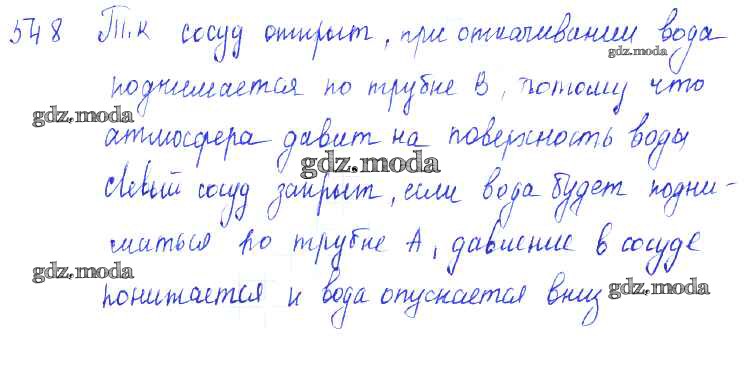 548 Т.к сосуд открыт, при откачивании вода
gdz.moda
поднимается по трубке В, потому что
gdz.moda
атмосфера давит на поверхность воды
gdz.moda
Левый сосуд закрыт, если вода будет подни-
маться по трубке А, давление в сосуде
gdz.moda
понижается и вода опускается вниз
gdz.moda